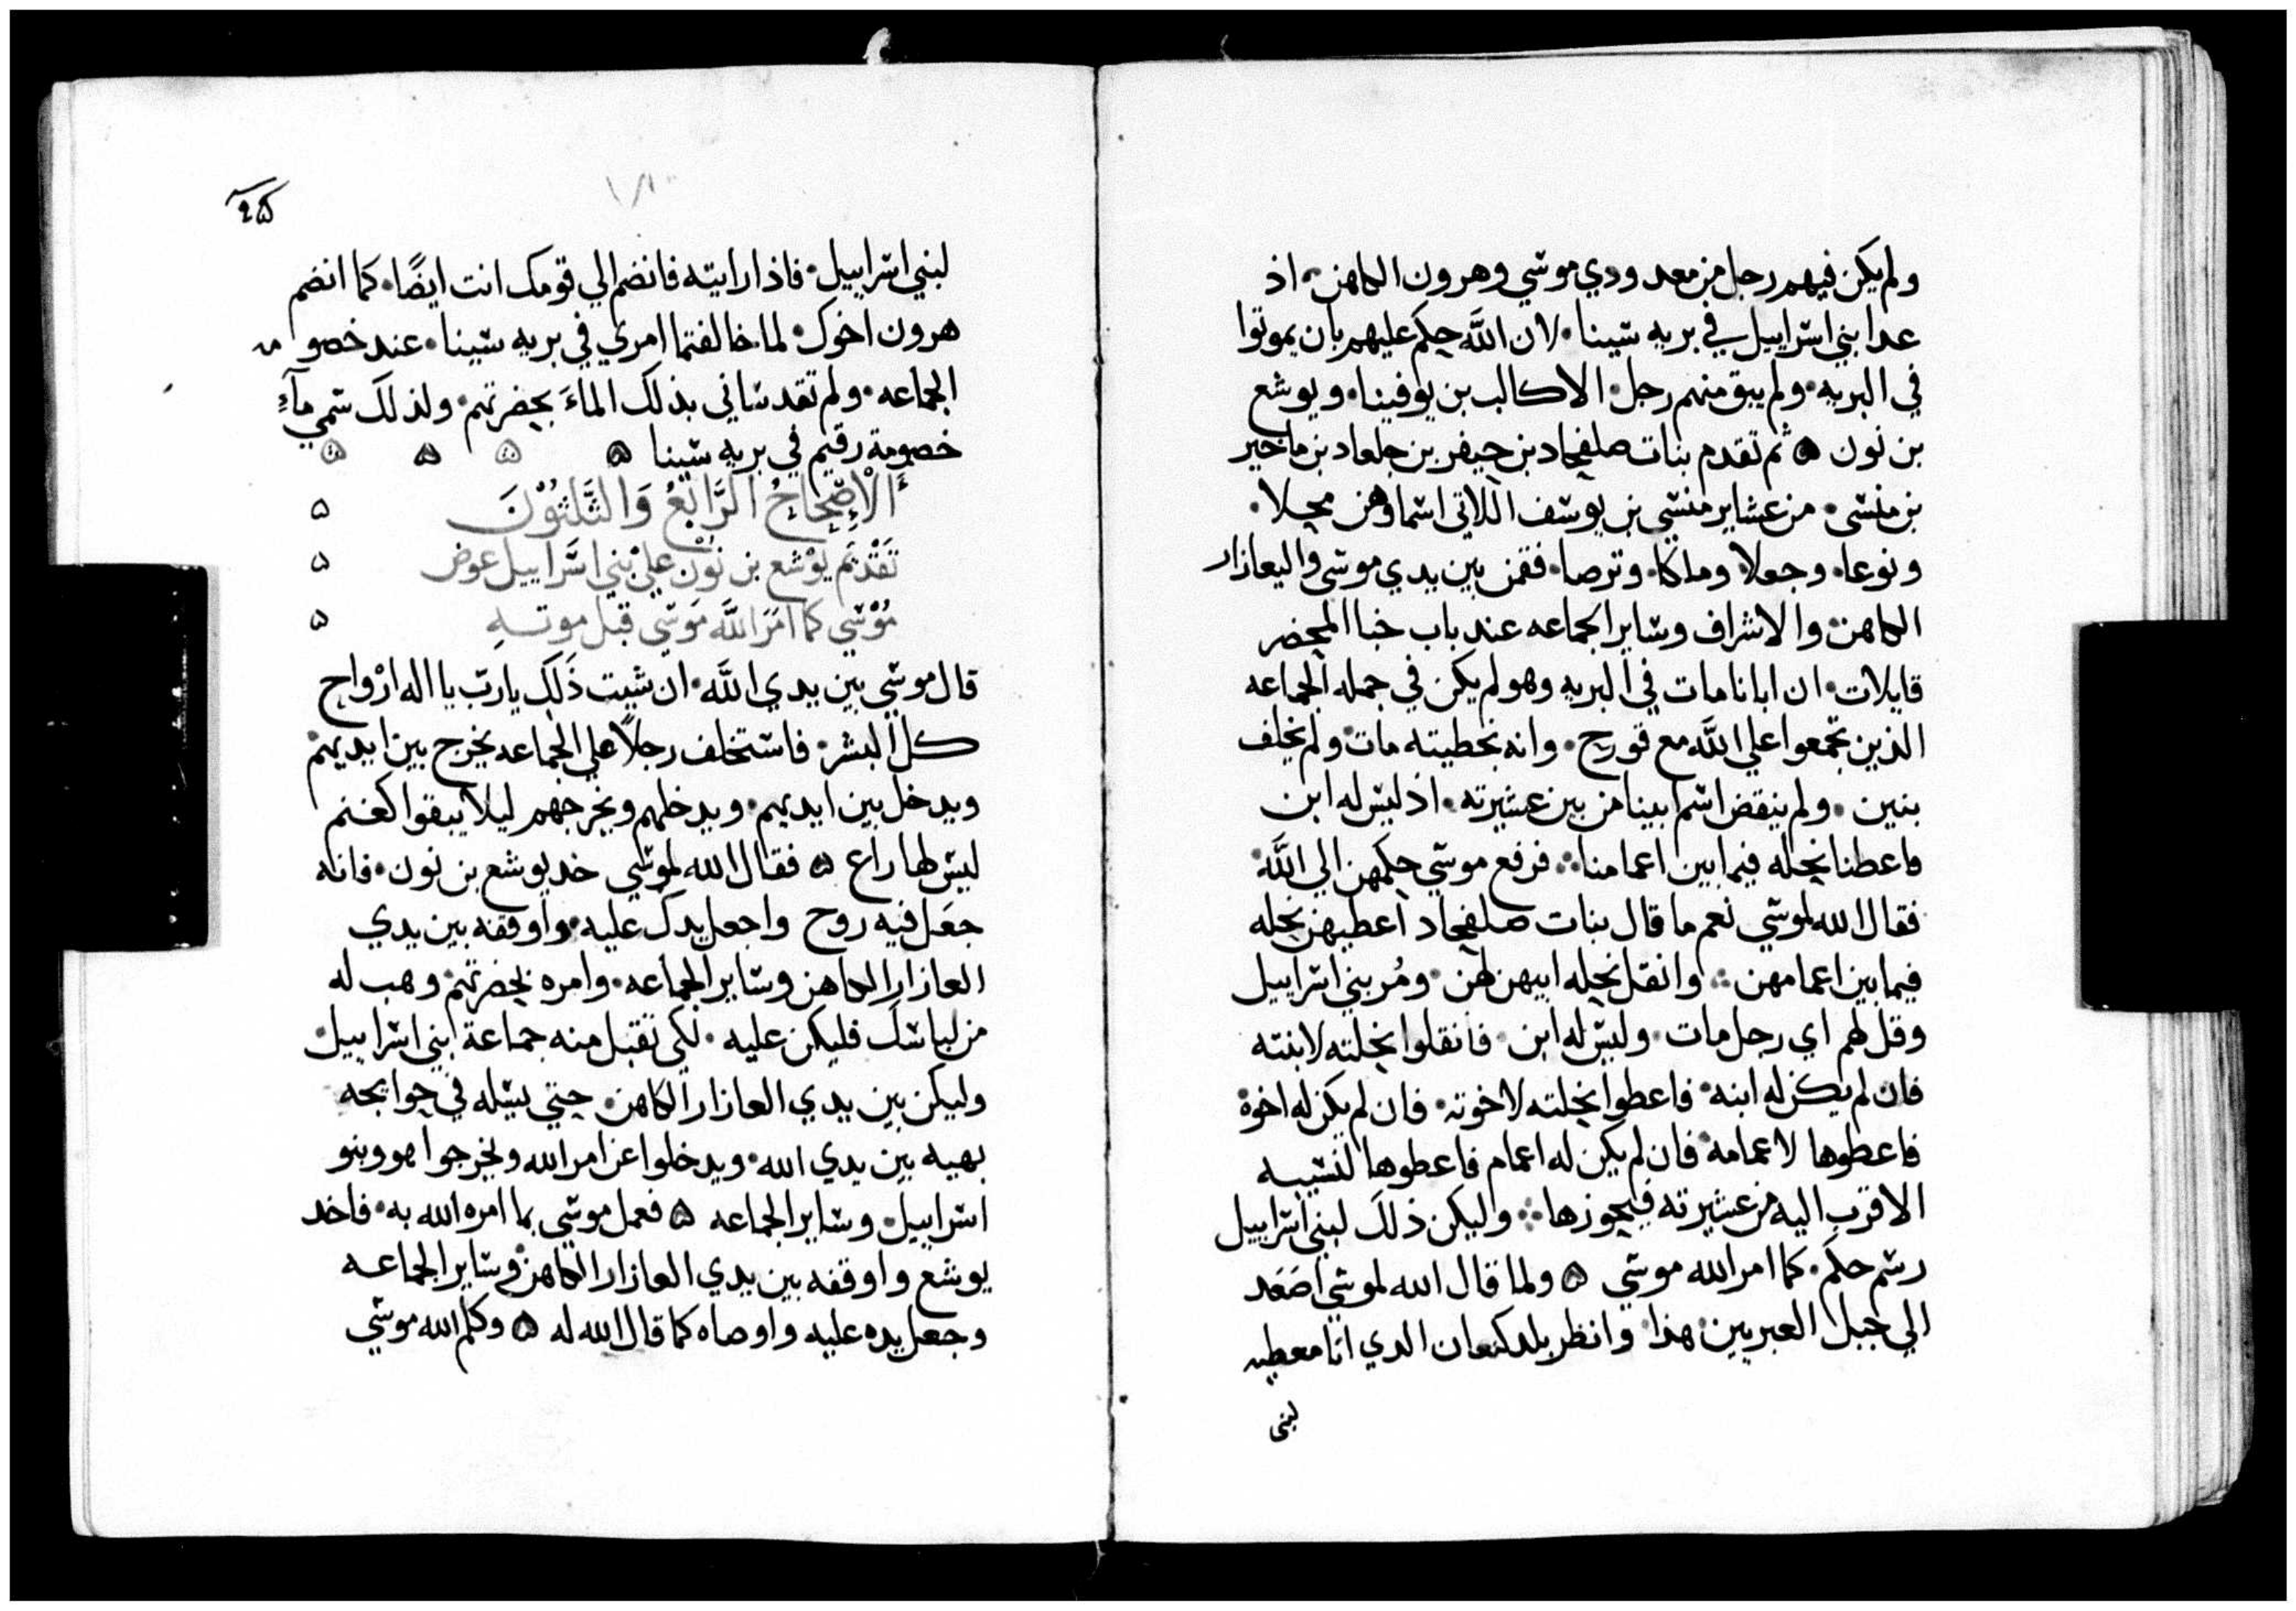 ولم يكن فيهم رجل من معدودي موسي وهرون الكاهن اذ
عدا بني اسراييل في بريه سينا لان اللَّه حكم عليهم بان يموتوا
في البريه ولم يبق منهم رجل الا كالب بن يوفينا ويوشع
بن نون ۵ ثم تقدم بنات صلفحاد بن حيفر بن جلعاد بن ماخير
بن منسي من عشاير منسي بن يوسف اللاتي اسماوهن محلا
ونوعا وجعلا وملكا وترصا فقمن بين يدي موسي واليعازار
الكاهن والاشراف وساير الجماعه عند باب خبا المحضر
قايلات ان ابانا مات في البريه وهو لم يكن في جمله الجماعه
الذين تجمعوا علي اللَّه مع قورح وانه بخطيته مات ولم يخلف
بنين ولم ينقض اسم ابينا من بين عشيرته اذ ليس له ابن
فاعطنا نحله فيما بين اعمامنا فرفع موسي حكمهن الي اللَّه
فقال الله لموسي نعم ما قال بنات صلفحاد اعطيهن نحله
فيما بين اعمامهن وانقل نحله ابيهن لهن ومُر بني اسراييل
وقل لهم اي رجل مات وليس له ابن فانقلوا نحلته لابنته
فان لم يكن له ابنه فاعطوا نحلته لاخوته فان لم يكن له اخوة
فاعطوها لاعمامه فان لم يكن له اعمام فاعطوها لنسيبه
الاقرب اليه من عشيرته فيحوزها وليكن ذلك لبني اسراييل
رسم حكم كما امر الله موسي ۵ ولما قال الله لموسي اصعد
الي جبل العبريين هذا وانظر بلد كنعان الدي انا معطيه
لبني
٤۵
لبني اسراييل فاذا رايته فانضم الي قومك انت ايضًا كما انضم
هرون اخوك لما خالفتما امري في بريه سينا عند خصومه
الجماعه ولم تقدساني بذلك الماءَ بحضرتهم ولذلك سمي مآءِ
خصومة رقيم في بريه سينا ۵ ۵ ۵ ۵
أَلْإِصْحَاحُ الرَّابِعُ وَالثَّلثُوْنَ ۵
تَقْدِيم يُوْشع بن نُوْن عليْ بْني اسَّراييل عوض ۵
مُوْسّي كما امَرَ اللَّه مَوسّي قبل موتهِ ۵
قال موسي بين يدي اللَّه ان شيت ذَلك يا ربّ يا اله ارْواح
كل البشر فاستخلف رجلاً علي الجماعه يخرج بين ايديهم
ويدخل بين ايديهم ويدخلهم ويخرجهم ليلا يبقوا كغنم
ليس لها راع ۵ فقال الله لموسي خد يوشع بن نون فانه
جعَل فيه روح واجعل يدك عليه واوقفه بين يدي
العازار الكاهن وساير الجماعه وامره بحضرتهم وهب له
من لباسك فليكن عليه لكي تقبل منه جماعة ابني اسراييل
وليكن بين يدي العازار الكاهن حتي يسله في حوايجه
بهيه بين يدي الله ويدخلوا عن امر الله ويخرجوا هو وبنو
اسراييل وساير الجماعه ۵ فعمل موسي بما امره الله به فاخد
يوشع واوقفه بين يدي العازار الكاهن وساير الجماعه
وجعل يده عليه واوصاه كما قال الله له ۵ وكلم الله موسي